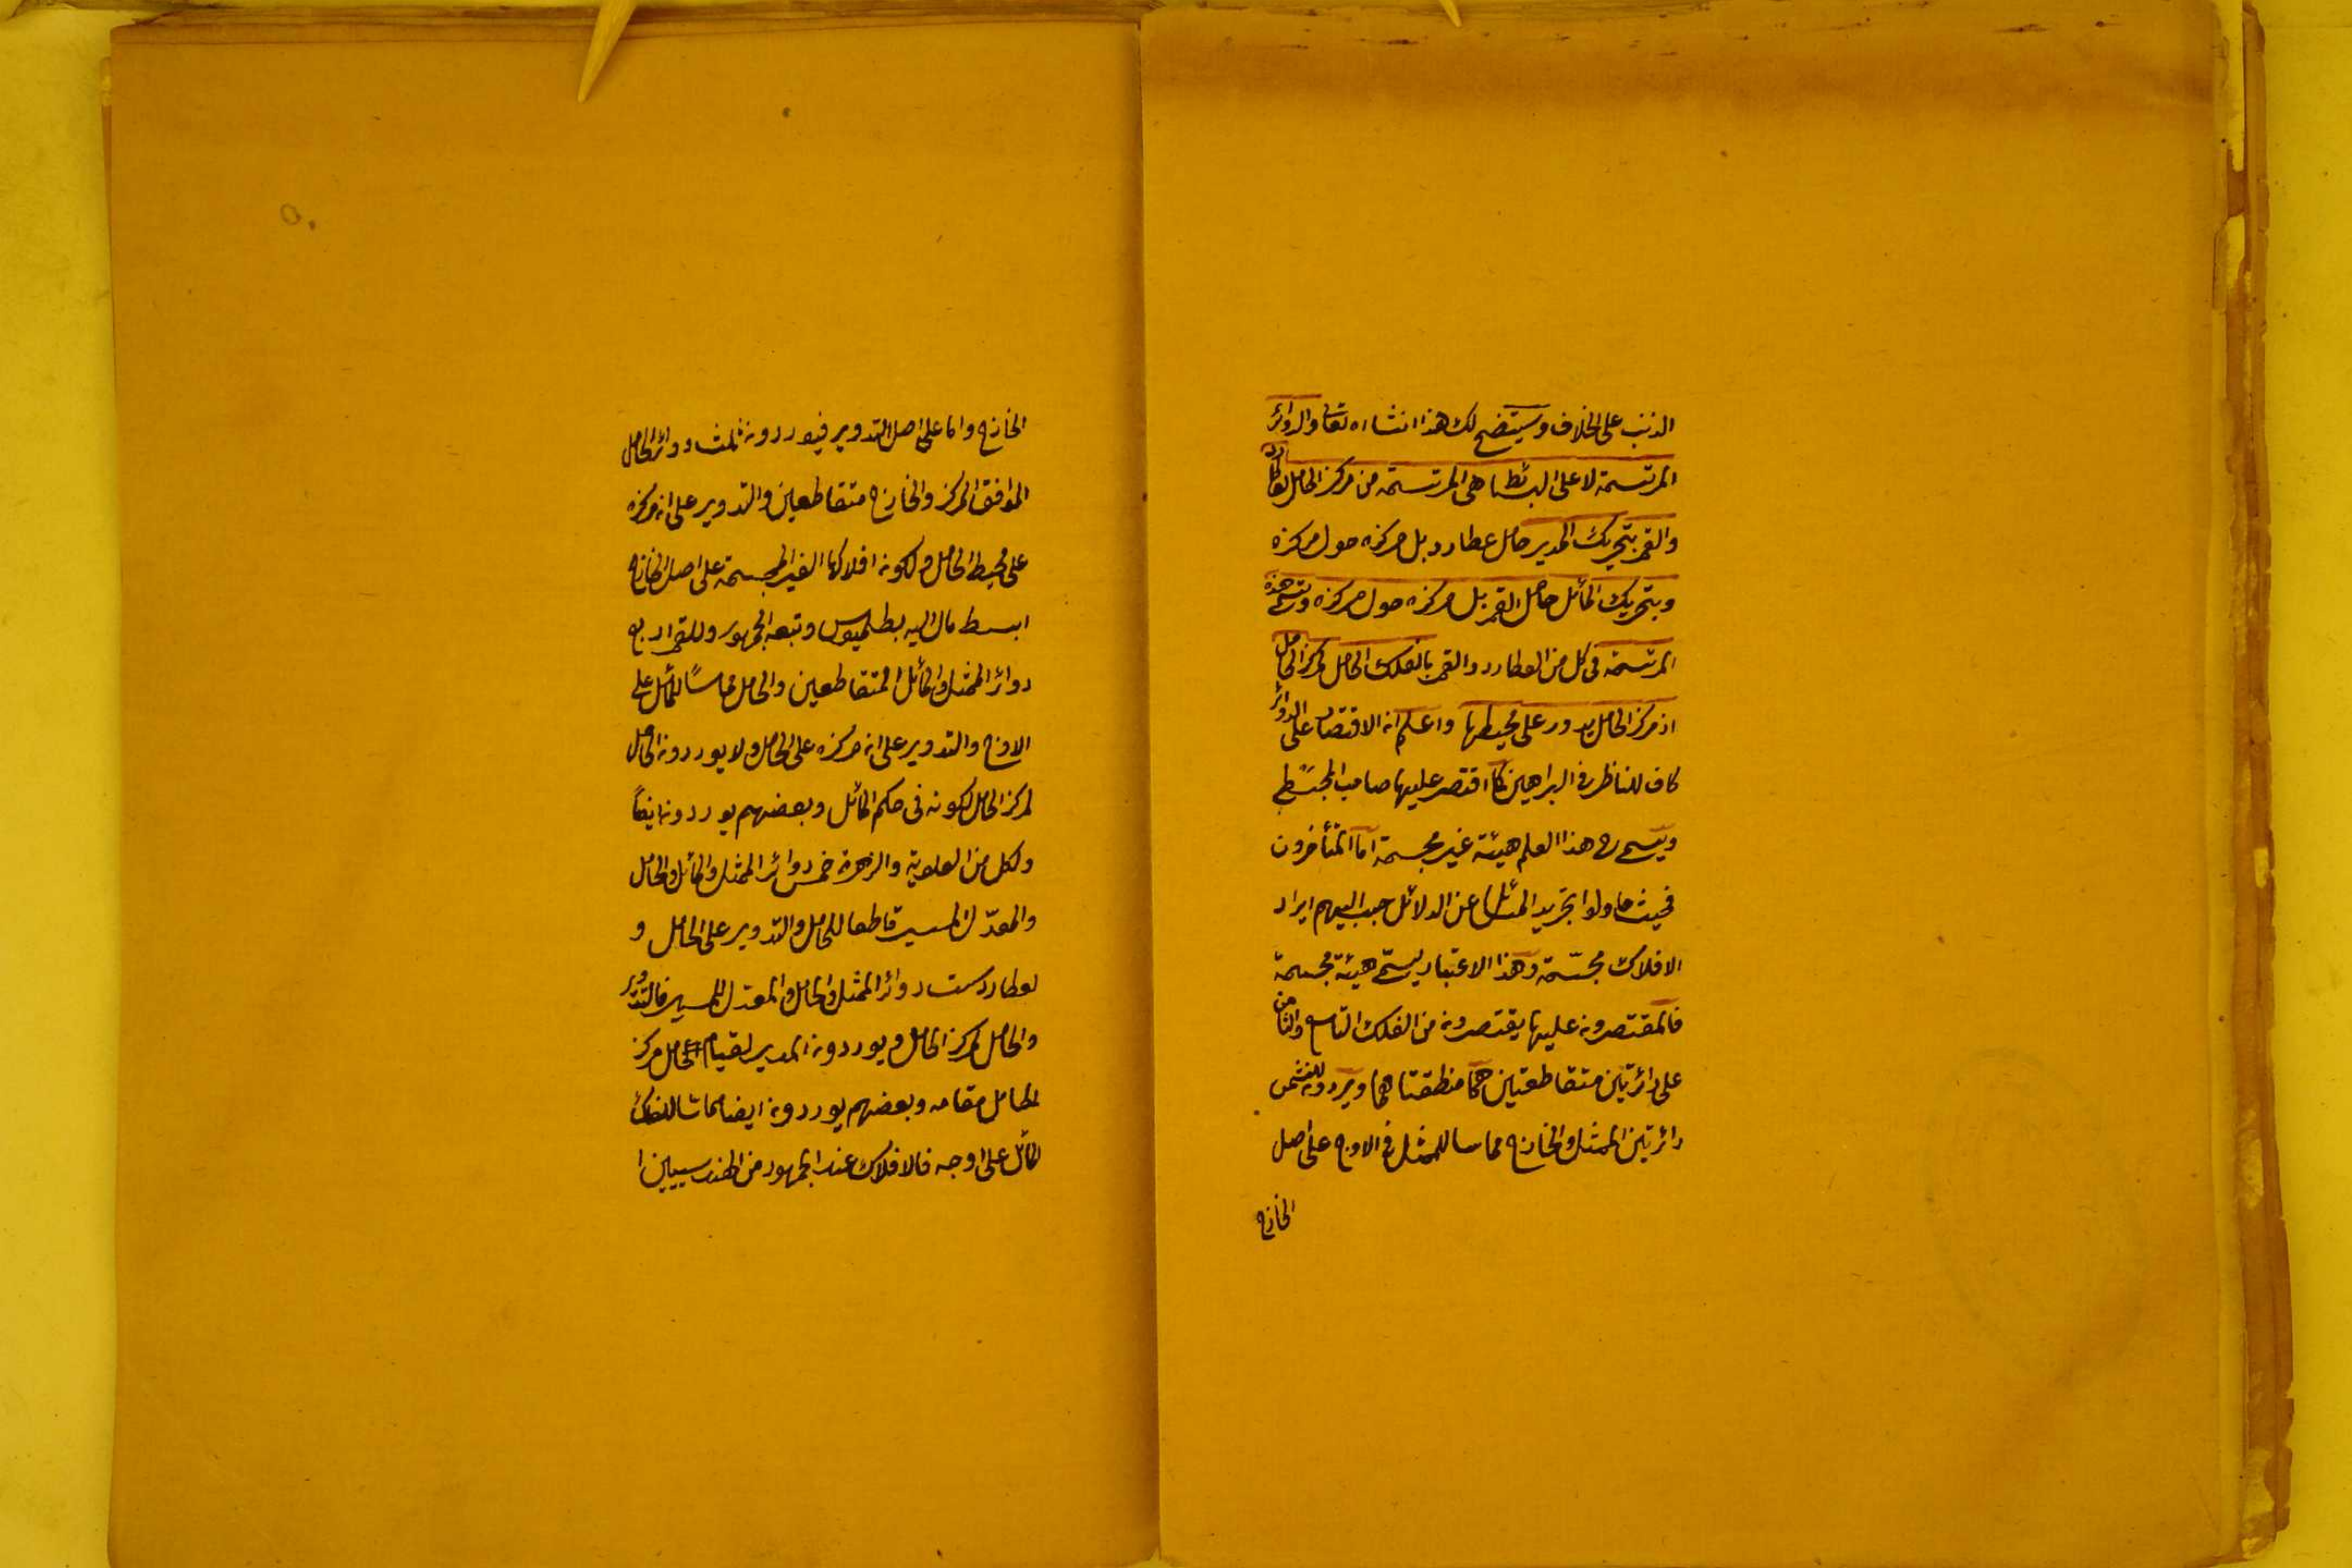 الذنب على الخلاف وسيتضح لك هذا انشاء الله تعالى والدوائر
المرتسمة لا على البسائط هى المرتسمة من مركز الحامل لعطارد
والقمر بتحريك المدير حامل عطارد بل مركزه حول مركزه
وبتحريك المائل حامل القمر بل مركزه حول مركزه وتسمى هذه
المرتسمة فى كل من العطارد والقمر بالفلك الحامل لمركز الحامل
اذ مركز الحامل يدور على محيطها واعلم ان الاقتصار على الدوائر
كاف للناظر فى البراهين كما اقتصر عليها صاحب المجسطى
ويسمى ح هذا العلم هيئة غير مجسمة اما المتأخرون
فحيث حاولوا تجريد المسائل عن الدلائل حبب اليهم ايراد
الافلاك مجسّمة وهذا الاعتبار يسمّى هيئة مجسمة
فالمقتصرون عليها يقتصرون من الفلك التاسع والثامن
على دائرتين متقاطعتين هما منطقتاهما ويوردون للشمس
دائرتين الممثل والخارج مماسا للممثل فى الاوج على اصل
الخارج
الخارج واما على اصل التدوير فيوردون ثلث دوائر الحامل
الموافق المركز والخارج متقاطعين والتدوير على ان مركزه
على محيط الحامل ولكون افلاكها الغير المجسمة على اصل الخارج
ابسط مال اليه بطلميوس وتبعه الجمهور وللقمر اربع
دوائر الممثل والمائل المتقاطعين والحامل مماسًا للمائل على
الاوج والتدوير على ان مركزه على الحامل ولا يوردون الحامل
لمركز الحامل لكونه فى حكم المائل وبعضهم يوردون ايضًا
ولكل من العلوية والزهرة خمس دوائر الممثل والمائل والحامل
والمعدّل المسير قاطعا للحامل والتدوير على الحامل و
لعطارد ست دوائر الممثل والحامل والمعدل المسير فالتدوير
والحامل لمركز الحامل ويوردون المدير لقيام الحامل مركز
لحامل مقامه وبعضهم يوردون ايضا مماسا للفلك
المائل على اوجه فالافلاك عند الجمهور من الهندسيين ا